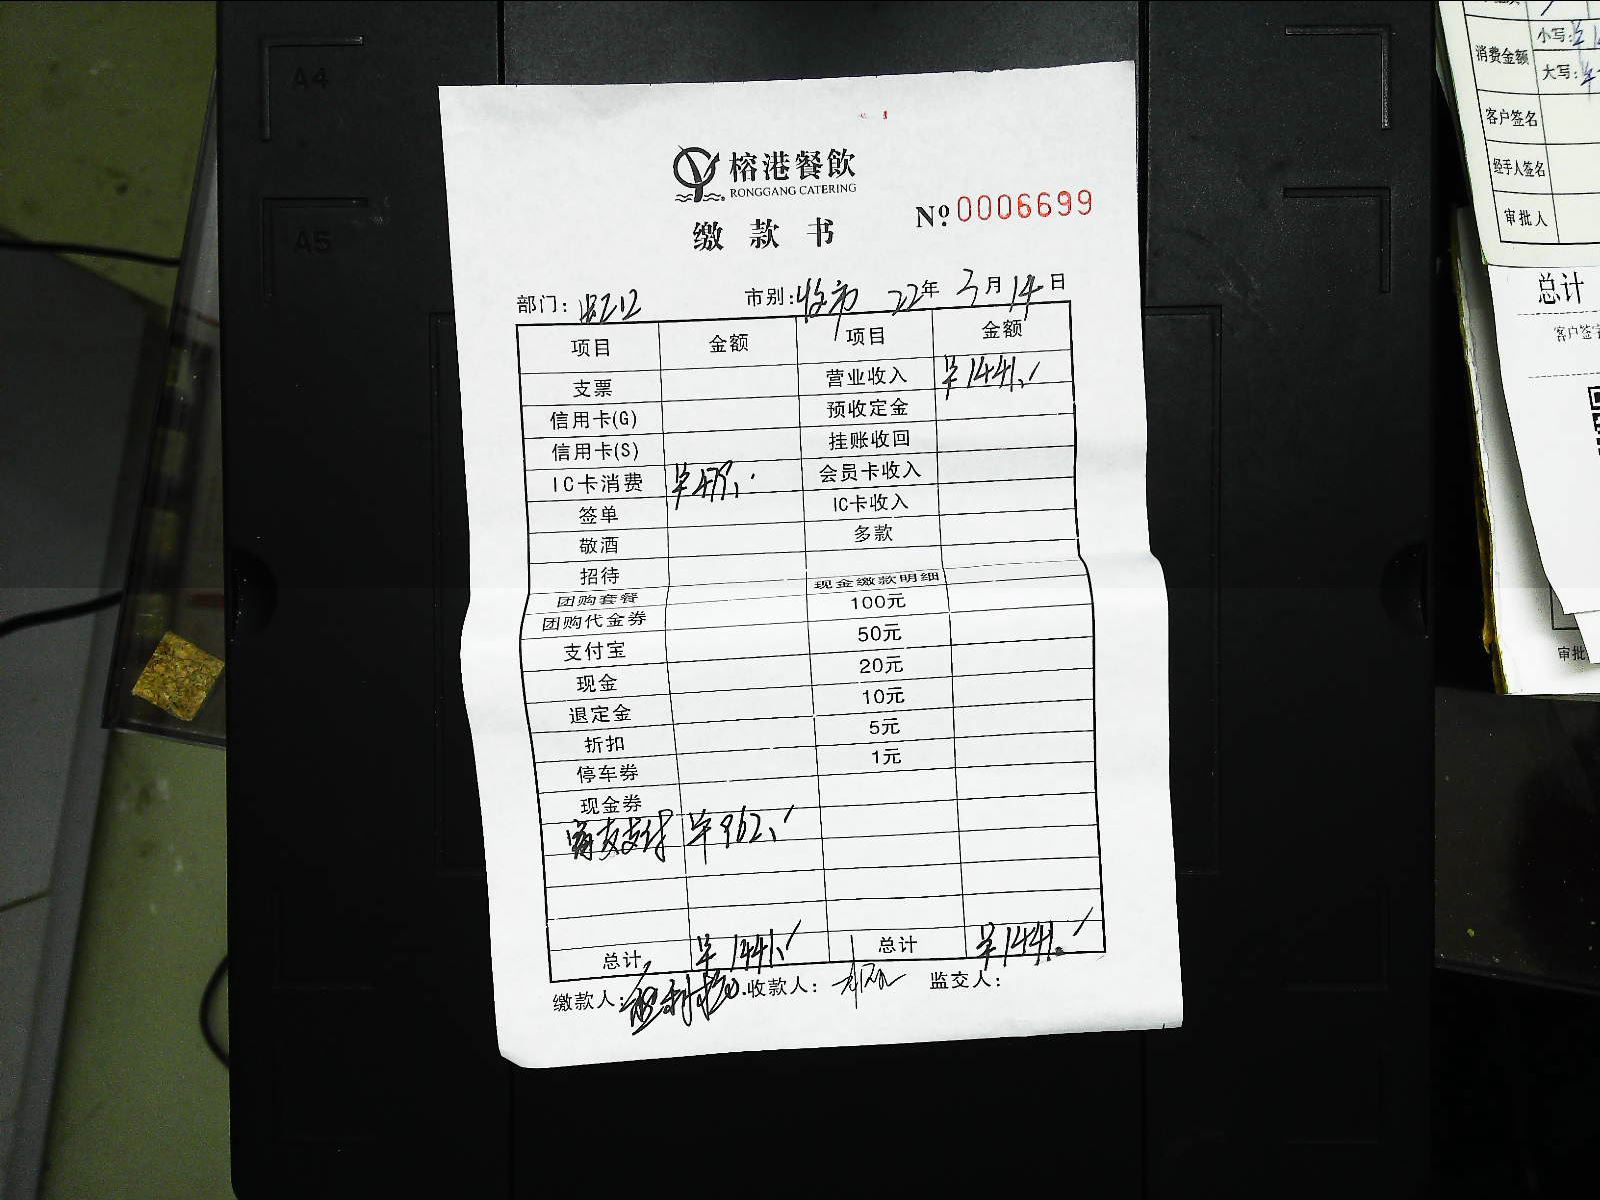 A4
A5
榕港餐飲
RONGGANG CATERING
缴款书
№ 0006699
部门： 市别：收市 22年 3月14日
项目 金额 项目 金额
支票 营业收入 ¥1441.
信用卡(G) 预收定金
信用卡(S) 挂账收回
IC卡消费 ¥479. 会员卡收入
签单 IC卡收入
敬酒 多款
招待
团购套餐 现金缴款明细
团购代金券 100元
支付宝 50元
现金 20元
退定金 10元
折扣 5元
停车券 1元
现金券
支付 ¥962.
总计 ¥1441. 总计 ¥1441.
缴款人： 收款人： 监交人：
消费金额 小写：
大写：
客户签名
经手人签名
审批人
总计
客户签字
审批